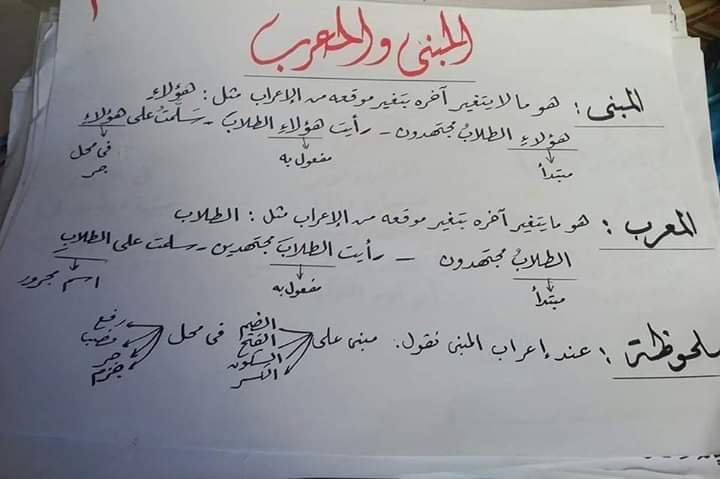 المبنى والمعرب
المبنى : هو ما لا يتغير آخره بتغير موقعه من الإعراب مثل : هؤلاءِ
هؤلاءِ الطلابُ مجتهدون - رأيت هؤلاءِ الطلابَ - سَلمتُ على هؤلاءِ
مبتدأ مفعول به فى محل جر
المعرب : هو ما يتغير آخره بتغير موقعه من الإعراب مثل : الطلاب
الطلابُ مجتهدون - رأيت الطلابَ مجتهدين - سلمت على الطلابِ
مبتدأ مفعول به اسم مجرور
ملحوظة : عند إعراب المبنى نقول . مبنى على الضم الفتح السكون الكسر فى محل رفع نصب جر جزم